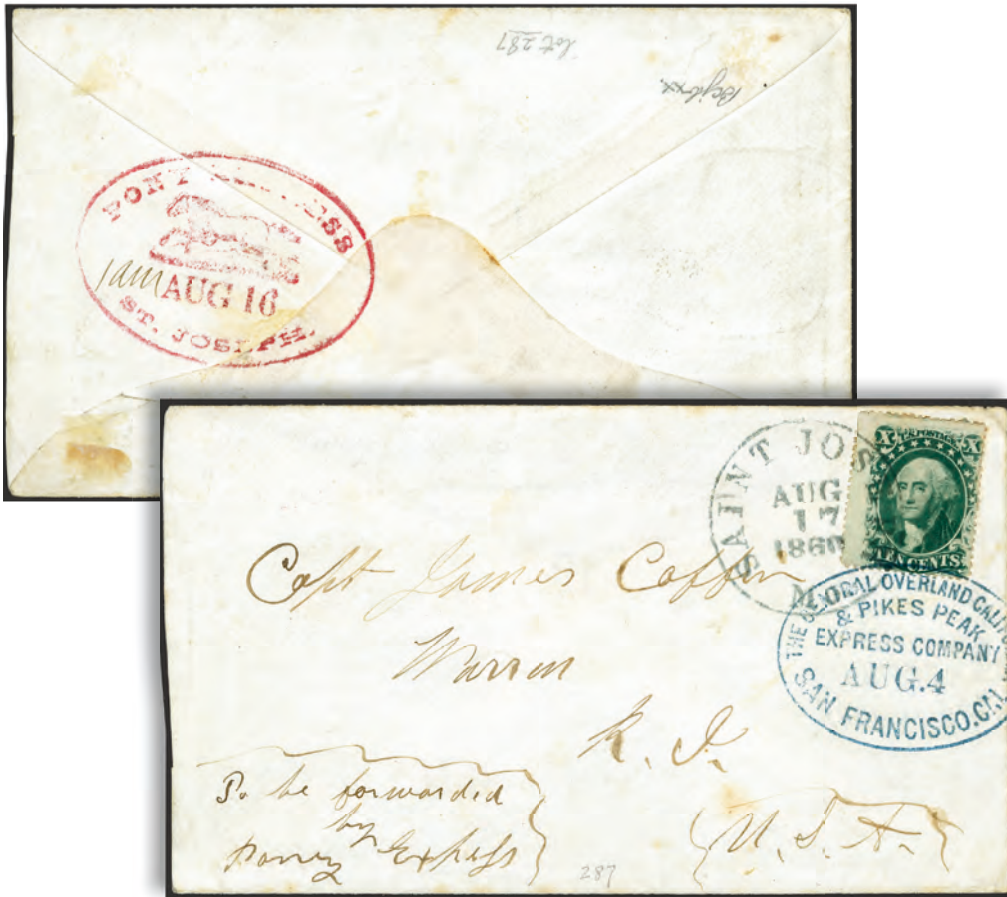 lot 287
PONY EXPRESS
1 am AUG 16
ST. JOSEPH.
SAINT JOS
AUG
17
1860
M
X U.S. POSTAGE X
TEN CENTS
THE CENTRAL OVERLAND CALIFO
& PIKES PEAK
EXPRESS COMPANY
AUG.4
SAN FRANCISCO.CAL
Capt James Coffin
Warren
R. I.
U. S. A.
To be forwarded
by
Poney Express
287